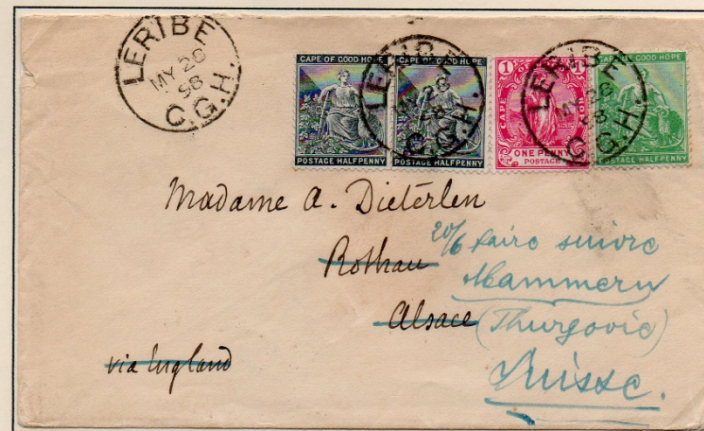 LERIBE
MY 28
98
C.G.H.
CAPE OF GOOD HOPE
POSTAGE HALFPENNY
CAPE OF GOOD HOPE
POSTAGE HALFPENNY
LERIBE
MY 28
98
C.G.H.
1
CAPE
ONE PENNY
POSTAGE
LERIBE
MY 28
98
C.G.H.
CAPE OF GOOD HOPE
POSTAGE HALFPENNY
Madame A. Dieterlen
Rothau
Alsace
via England
20/6 faire suivre
Mammern
(Thurgovie)
Suisse.